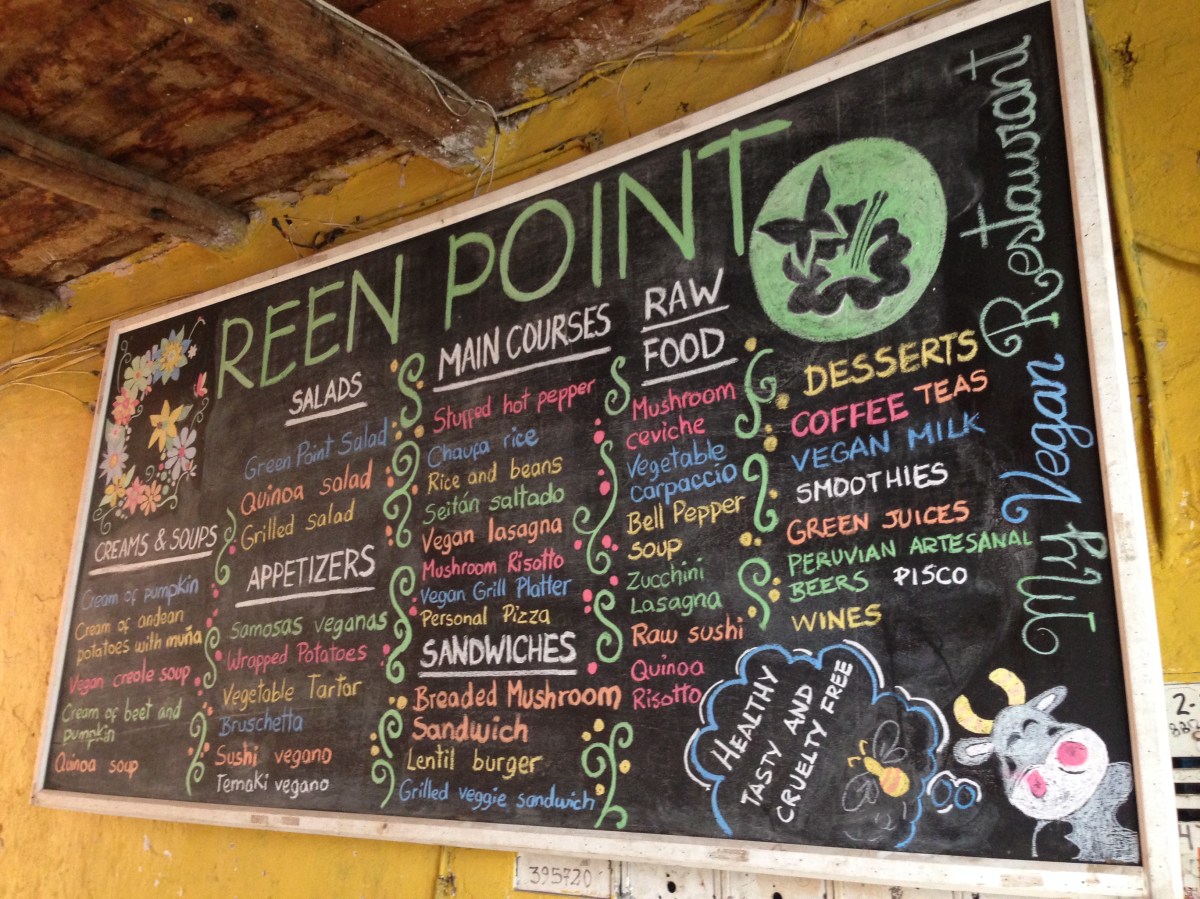 REEN POINT
CREAMS & SOUPS
Cream of pumpkin
Cream of andean
potatoes with muña
Vegan creole soup
Cream of beet and
pumpkin
Quinoa soup
SALADS
Green Point Salad
Quinoa salad
Grilled Salad
APPETIZERS
Samosas veganas
Wrapped Potatoes
Vegetable Tartar
Bruschetta
Sushi vegano
Temaki vegano
MAIN COURSES
Stuffed hot pepper
Chaufa rice
Rice and beans
Seitán saltado
Vegan lasagna
Mushroom Risotto
Vegan Grill Platter
Personal Pizza
SANDWICHES
Breaded Mushroom
Sandwich
Lentil burger
Grilled veggie sandwich
RAW
FOOD
Mushroom
ceviche
Vegetable
carpaccio
Bell Pepper
soup
Zucchini
Lasagna
Raw sushi
Quinoa
Risotto
DESSERTS
COFFEE TEAS
VEGAN MILK
SMOOTHIES
GREEN JUICES
PERUVIAN ARTESANAL
BEERS PISCO
WINES
HEALTHY
TASTY AND
CRUELTY FREE
My Vegan Restaurant
395720